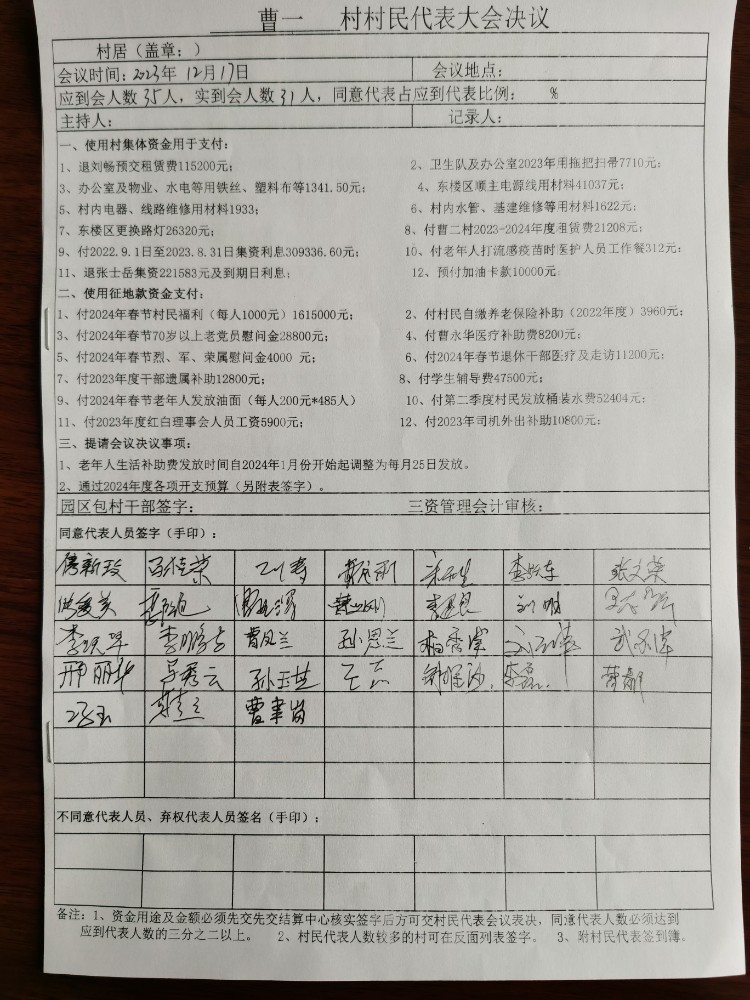 曹一 村村民代表大会决议
村居（盖章：）
会议时间：2023年 12月17日 会议地点：
应到会人数35人，实到会人数31人，同意代表占应到代表比例： %
主持人： 记录人：
一、使用村集体资金用于支付：
1、退刘畅预交租赁费115200元； 2、卫生队及办公室2023年用拖把扫帚7710元；
3、办公室及物业、水电等用铁丝、塑料布等1341.50元； 4、东楼区顺主电源线用材料41037元；
5、村内电器、线路维修用材料1933； 6、村内水管、基建维修等用材料1622元；
7、东楼区更换路灯26320元； 8、付曹二村2023-2024年度租赁费21208元；
9、付2022.9.1日至2023.8.31日集资利息309336.60元； 10、付老年人打流感疫苗时医护人员工作餐312元；
11、退张士岳集资221583元及到期日利息； 12、预付加油卡款10000元；
二、使用征地款资金支付：
1、付2024年春节村民福利（每人1000元）1615000元； 2、付村民自缴养老保险补助（2022年度）3960元；
3、付2024年春节70岁以上老党员慰问金28800元； 4、付曹永华医疗补助费8200元；
5、付2024年春节烈、军、荣属慰问金4000 元； 6、付2024年春节退休干部医疗及走访11200元；
7、付2023年度干部遗属补助12800元； 8、付学生辅导费47500元；
9、付2024年春节老年人发放油面（每人200元*485人） 10、付第二季度村民发放桶装水费52404元；
11、付2023年度红白理事会人员工资5900元； 12、付2023年司机外出补助10800元；
三、提请会议决议事项：
1、老年人生活补助费发放时间自2024年1月份开始起调整为每月25日发放。
2、通过2024年度各项开支预算（另附表签字）。
园区包村干部签字： 三资管理会计审核：
同意代表人员签字（手印）：
张文荣
刘明
曹凤兰 孙思兰
邢丽华 吕秀云 孙玉芝 李磊
冯玉
不同意代表人员、弃权代表人员签名（手印）：
备注：1、资金用途及金额必须先交先交结算中心核实签字后方可交村民代表会议表决，同意代表人数必须达到
应到代表人数的三分之二以上。 2、村民代表人数较多的村可在反面列表签字。 3、附村民代表签到簿。